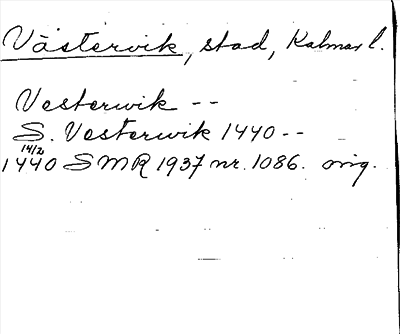 Västervik, stad, Kalmar l.
Vesterwik --
S. Vesterwik 1440 --
14/2
1440 SMR 1937 nr. 1086. orig.